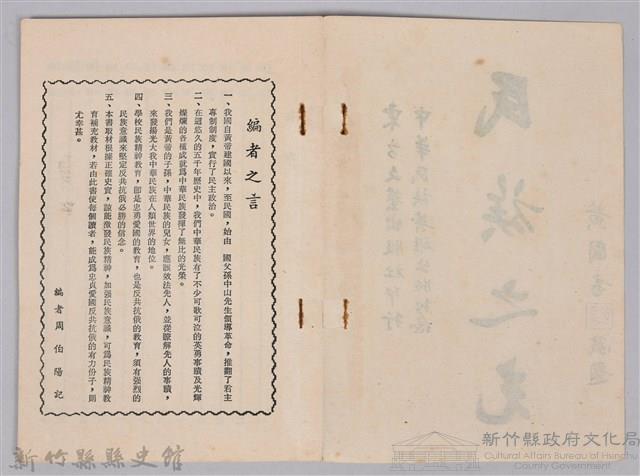 編者之言
一、我國自黃帝建國以來，至民國，始由　國父孫中山先生領導革命，推翻了君主
專制制度，實行了民主政治。
二、在這悠久的五千年歷史中，我們中華民族有了不少可歌可泣的英勇事蹟及光輝
燦爛的各種成就爲中華民族發揮了無比的光榮。
三、我們是黃帝的子孫，中華民族的兒女，應該效法先人，並從瞭解先人的事蹟，
來發揚光大我中華民族在人類世界的地位。
四、學校民族精神教育，卽是忠勇愛國的教育，也是反共抗俄的教育，須有强烈的
民族意識來堅定反共抗俄必勝的信念。
五、本書取材根據正確史實，該能激發民族精神，加强民族意識，可爲民族精神教
育補充教材，若由此書使每個讀者，能成爲忠貞愛國反共抗俄的有力份子，則
尤幸甚。
編者周伯陽記
民族之光
新竹縣縣史館
新竹縣政府文化局
Cultural Affairs Bureau of Hsinchu
County Government